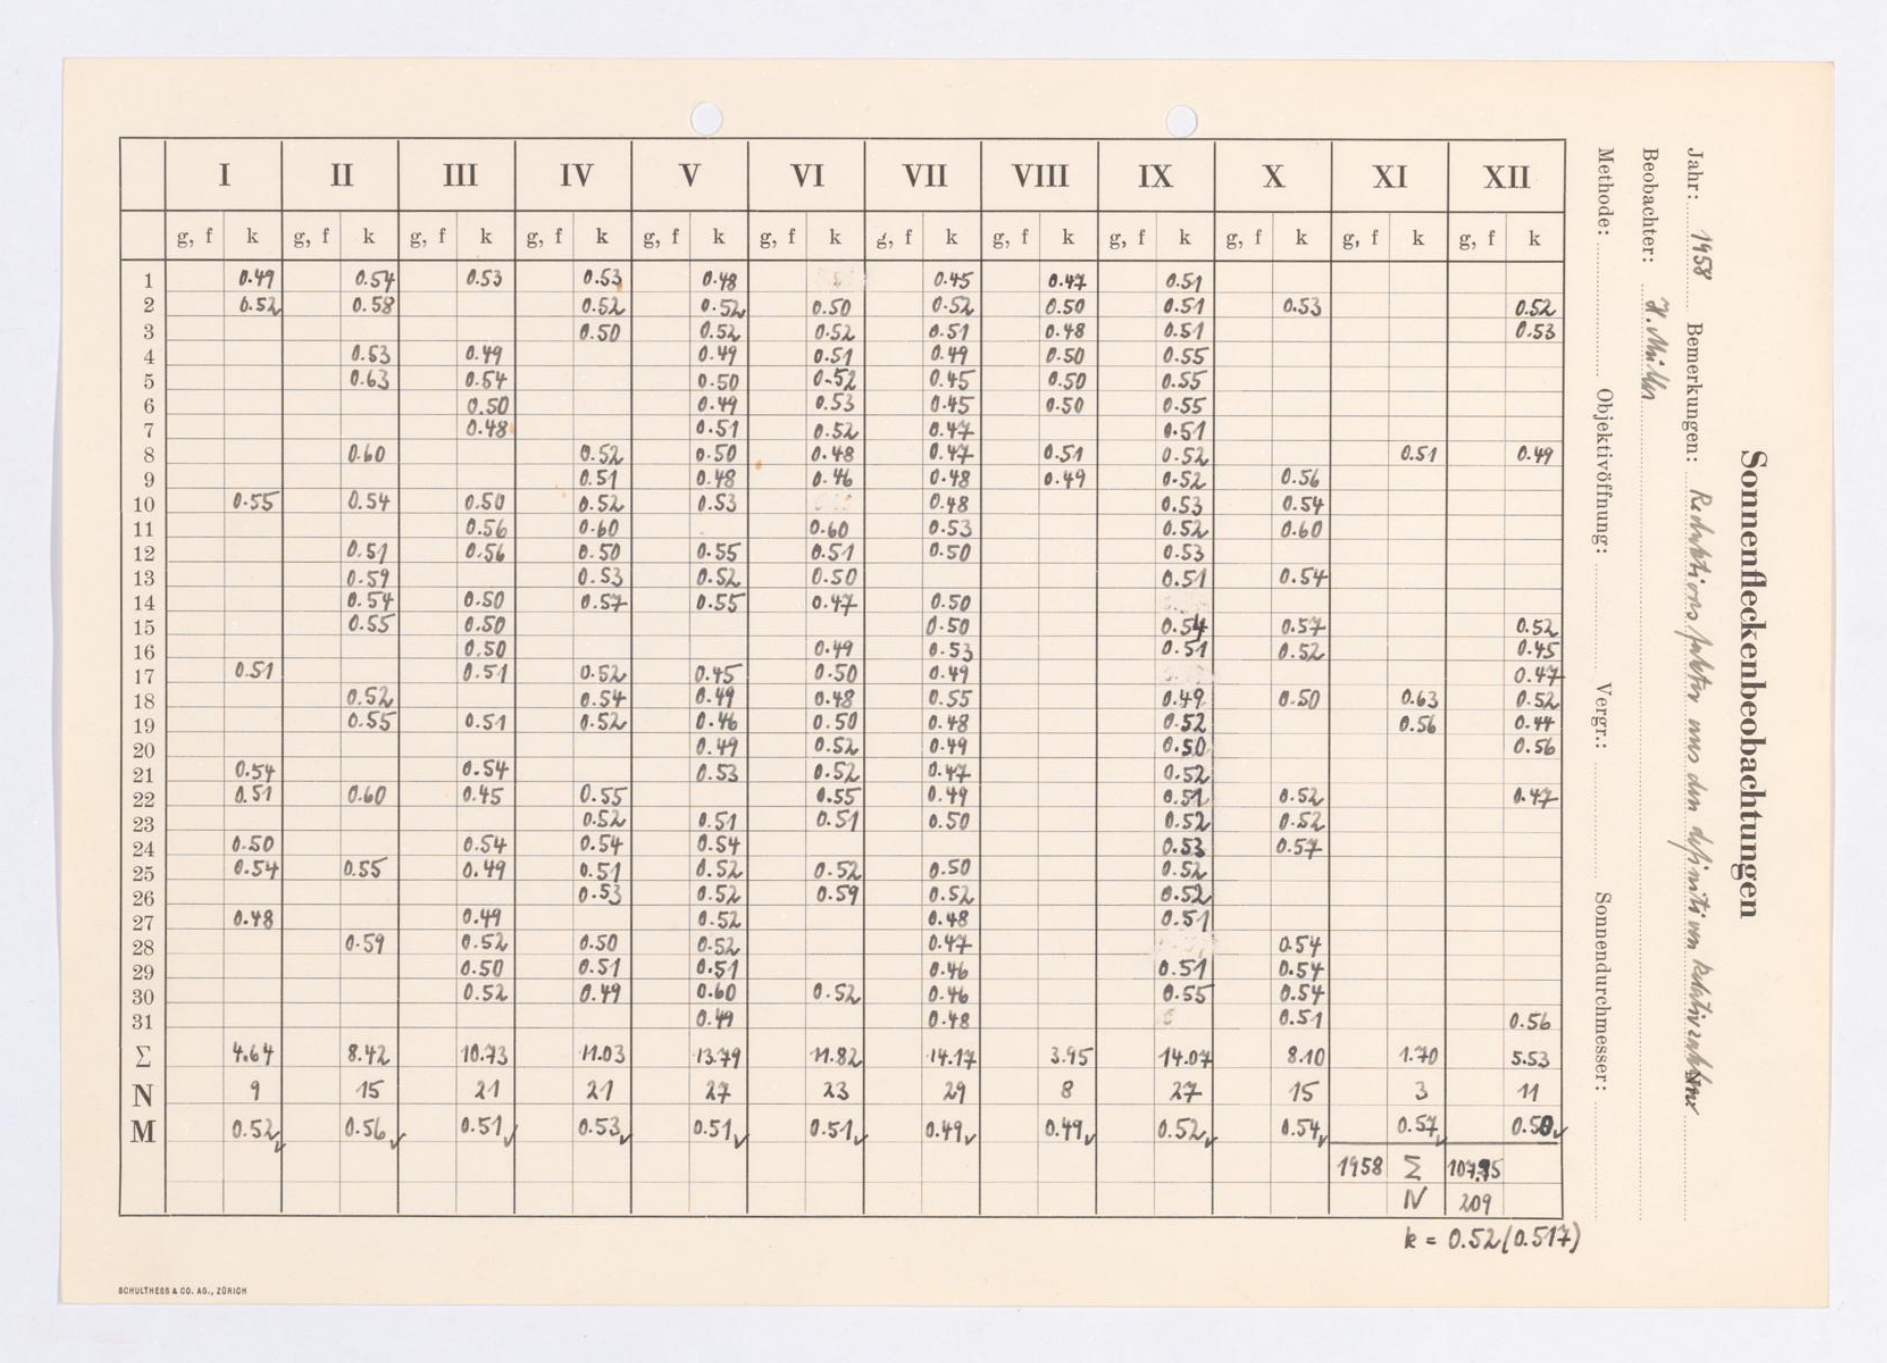 Sonnenfleckenbeobachtungen
Jahr: 1958 Bemerkungen: Reduktionsfaktor aus den definitiven Relativzahlen
Beobachter:
Methode: Objektivöffnung: Vergr.: Sonnendurchmesser:
I II III IV V VI VII VIII IX X XI XII
g, f k g, f k g, f k g, f k g, f k g, f k g, f k g, f k g, f k g, f k g, f k g, f k
1 0.49 0.54 0.53 0.53 0.48 0.45 0.47 0.51
2 0.52 0.58 0.52 0.52 0.50 0.52 0.50 0.51 0.53 0.52
3 0.50 0.52 0.52 0.51 0.48 0.51 0.53
4 0.53 0.49 0.49 0.51 0.49 0.50 0.55
5 0.63 0.54 0.50 0.52 0.45 0.50 0.55
6 0.50 0.49 0.53 0.45 0.50 0.55
7 0.48 0.51 0.52 0.47 0.51
8 0.60 0.52 0.50 0.48 0.47 0.51 0.52 0.51 0.49
9 0.51 0.48 0.46 0.48 0.49 0.52 0.56
10 0.55 0.54 0.50 0.52 0.53 0.48 0.53 0.54
11 0.56 0.60 0.60 0.53 0.52 0.60
12 0.51 0.56 0.50 0.55 0.51 0.50 0.53
13 0.59 0.53 0.52 0.50 0.51 0.54
14 0.54 0.50 0.57 0.55 0.47 0.50
15 0.55 0.50 0.50 0.54 0.57 0.52
16 0.50 0.49 0.53 0.51 0.52 0.45
17 0.51 0.51 0.52 0.45 0.50 0.49 0.47
18 0.52 0.54 0.49 0.48 0.55 0.49 0.50 0.63 0.52
19 0.55 0.51 0.52 0.46 0.50 0.48 0.52 0.56 0.44
20 0.49 0.52 0.49 0.50 0.56
21 0.54 0.54 0.53 0.52 0.47 0.52
22 0.51 0.60 0.45 0.55 0.55 0.49 0.51 0.52 0.47
23 0.52 0.51 0.51 0.50 0.52 0.52
24 0.50 0.54 0.54 0.54 0.53 0.57
25 0.54 0.55 0.49 0.51 0.52 0.52 0.50 0.52
26 0.53 0.52 0.59 0.52 0.52
27 0.48 0.49 0.52 0.48 0.51
28 0.59 0.52 0.50 0.52 0.47 0.54
29 0.50 0.51 0.51 0.46 0.51 0.54
30 0.52 0.49 0.60 0.52 0.46 0.55 0.54
31 0.49 0.48 0.51 0.56
Σ 4.64 8.42 10.73 11.03 13.79 11.82 14.17 3.95 14.07 8.10 1.70 5.53
N 9 15 21 21 27 23 29 8 27 15 3 11
M 0.52✓ 0.56✓ 0.51✓ 0.53✓ 0.51✓ 0.51✓ 0.49✓ 0.49✓ 0.52✓ 0.54✓ 0.57✓ 0.50✓
1958 Σ 107.95
N 209
k = 0.52 (0.517)
SCHULTHESS & CO. AG., ZÜRICH